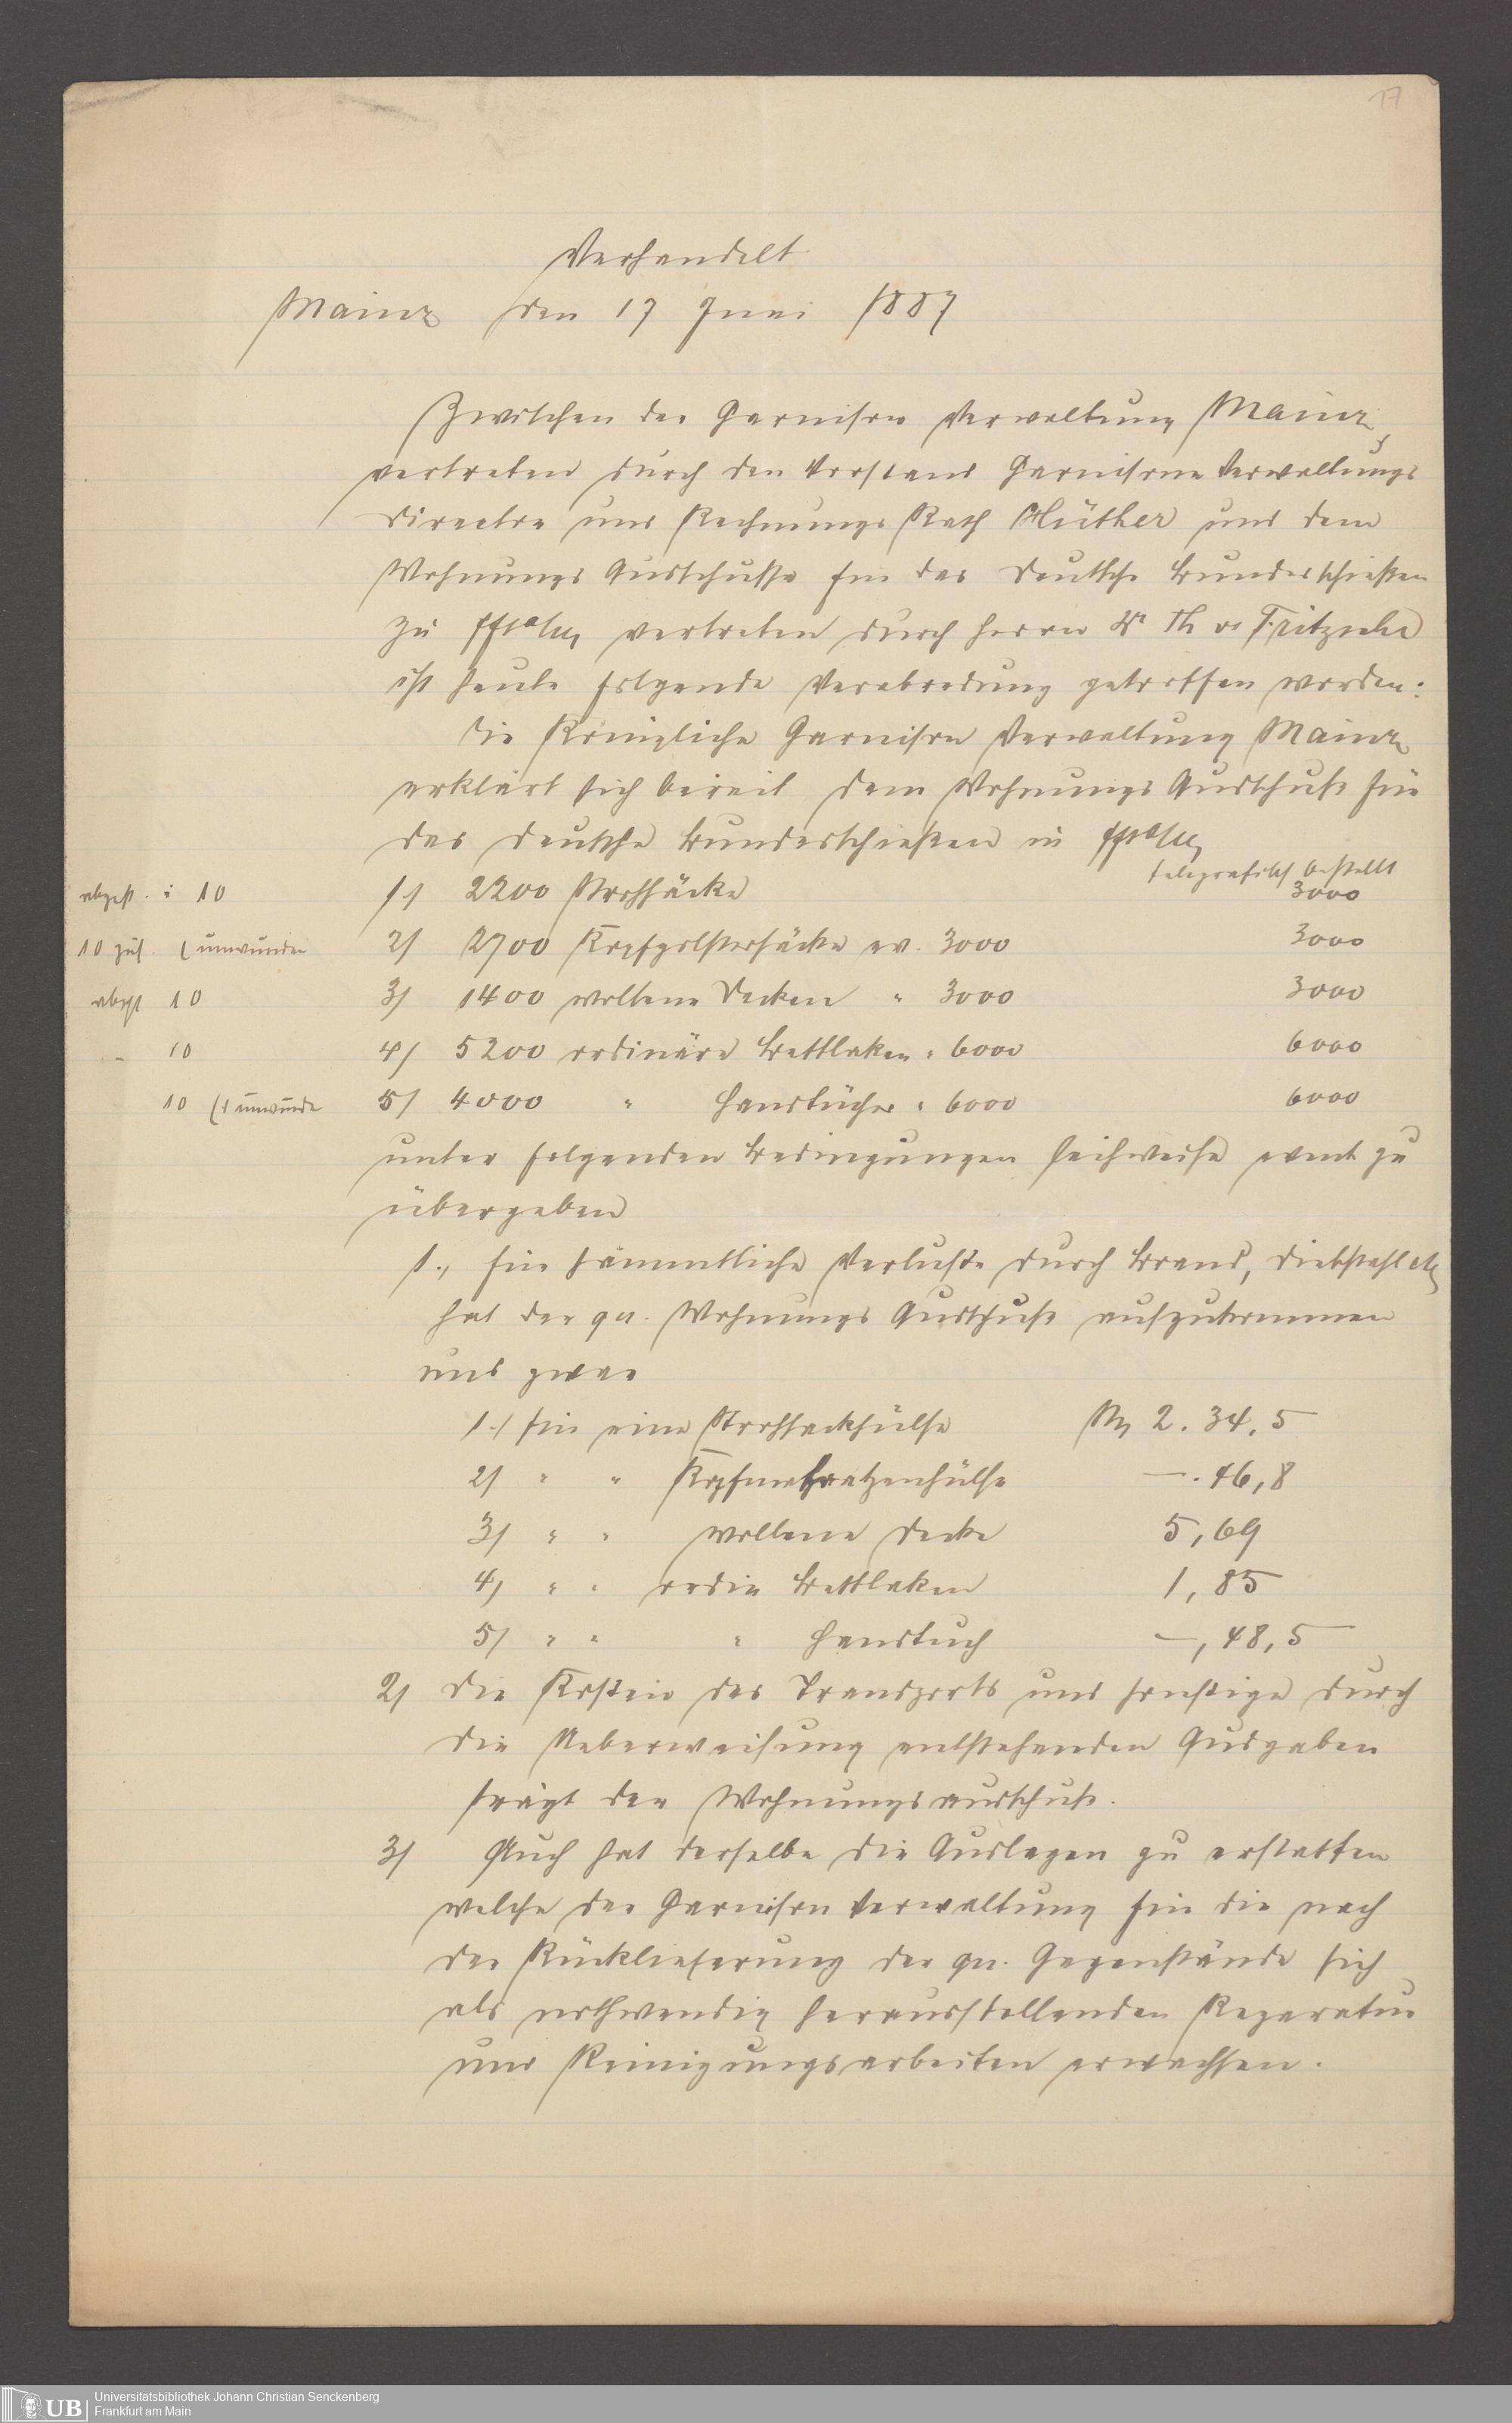 17
Verhandelt
Mainz den 17 Juni 1887
Zwischen der Garnison Verwaltung Mainz,
vertreten durch den Vorstand Garnison Verwaltungs
Director und Rechnungs Rath Hüther und dem
Wohnungs Ausschusse für das Deutsche Bundesschießen
zu Ffta/M vertreten durch Herrn Dr Th Fritzsche
ist heute folgende Verabredung getroffen worden:
Die Königliche Garnison Verwaltung Mainz
erklärt sich bereit dem Wohnungs Ausschuß für
das deutsche Bundesschießen in Ffta/M
telegrafisch bestellt
abgest. : 10 1.) 2200 Strohsäcke 3000
10 zus. ( umwunden 2) 2700 Kopfpolstersäcke ev. 3000 3000
abgst 10 3) 1400 wollene Decken " 3000 3000
– 10 4) 5200 ordinäre Bettlaken " 6000 6000
10 ( umwunde 5) 4000 " Handtücher " 6000 6000
unter folgenden Bedingungen leihweise event zu
übergeben
1., für sämmtliche Verluste durch Brand, Diebstahl etc
hat der qu. Wohnungs Ausschuß aufzukommen
und zwar
1.) für eine Strohsackhülse M 2.34,5
2) " " Kopfmatratzenhülse —.46,8
3) " " wollene Decke 5,69
4) " " ordin Bettlaken 1,85
5) " " " Handtuch —,48,5
2) Die Kosten des Transports und sonstige durch
die Ueberweisung entstehenden Ausgaben
trägt der Wohnungsausschuß.
3) Auch hat derselbe die Auslagen zu erstatten
welche der Garnison Verwaltung für die nach
der Rücklieferung der qu. Gegenstände sich
als nothwendig herausstellenden Reparatur
und Reinigungsarbeiten erwachsen.
UB
Universitätsbibliothek Johann Christian Senckenberg
Frankfurt am Main